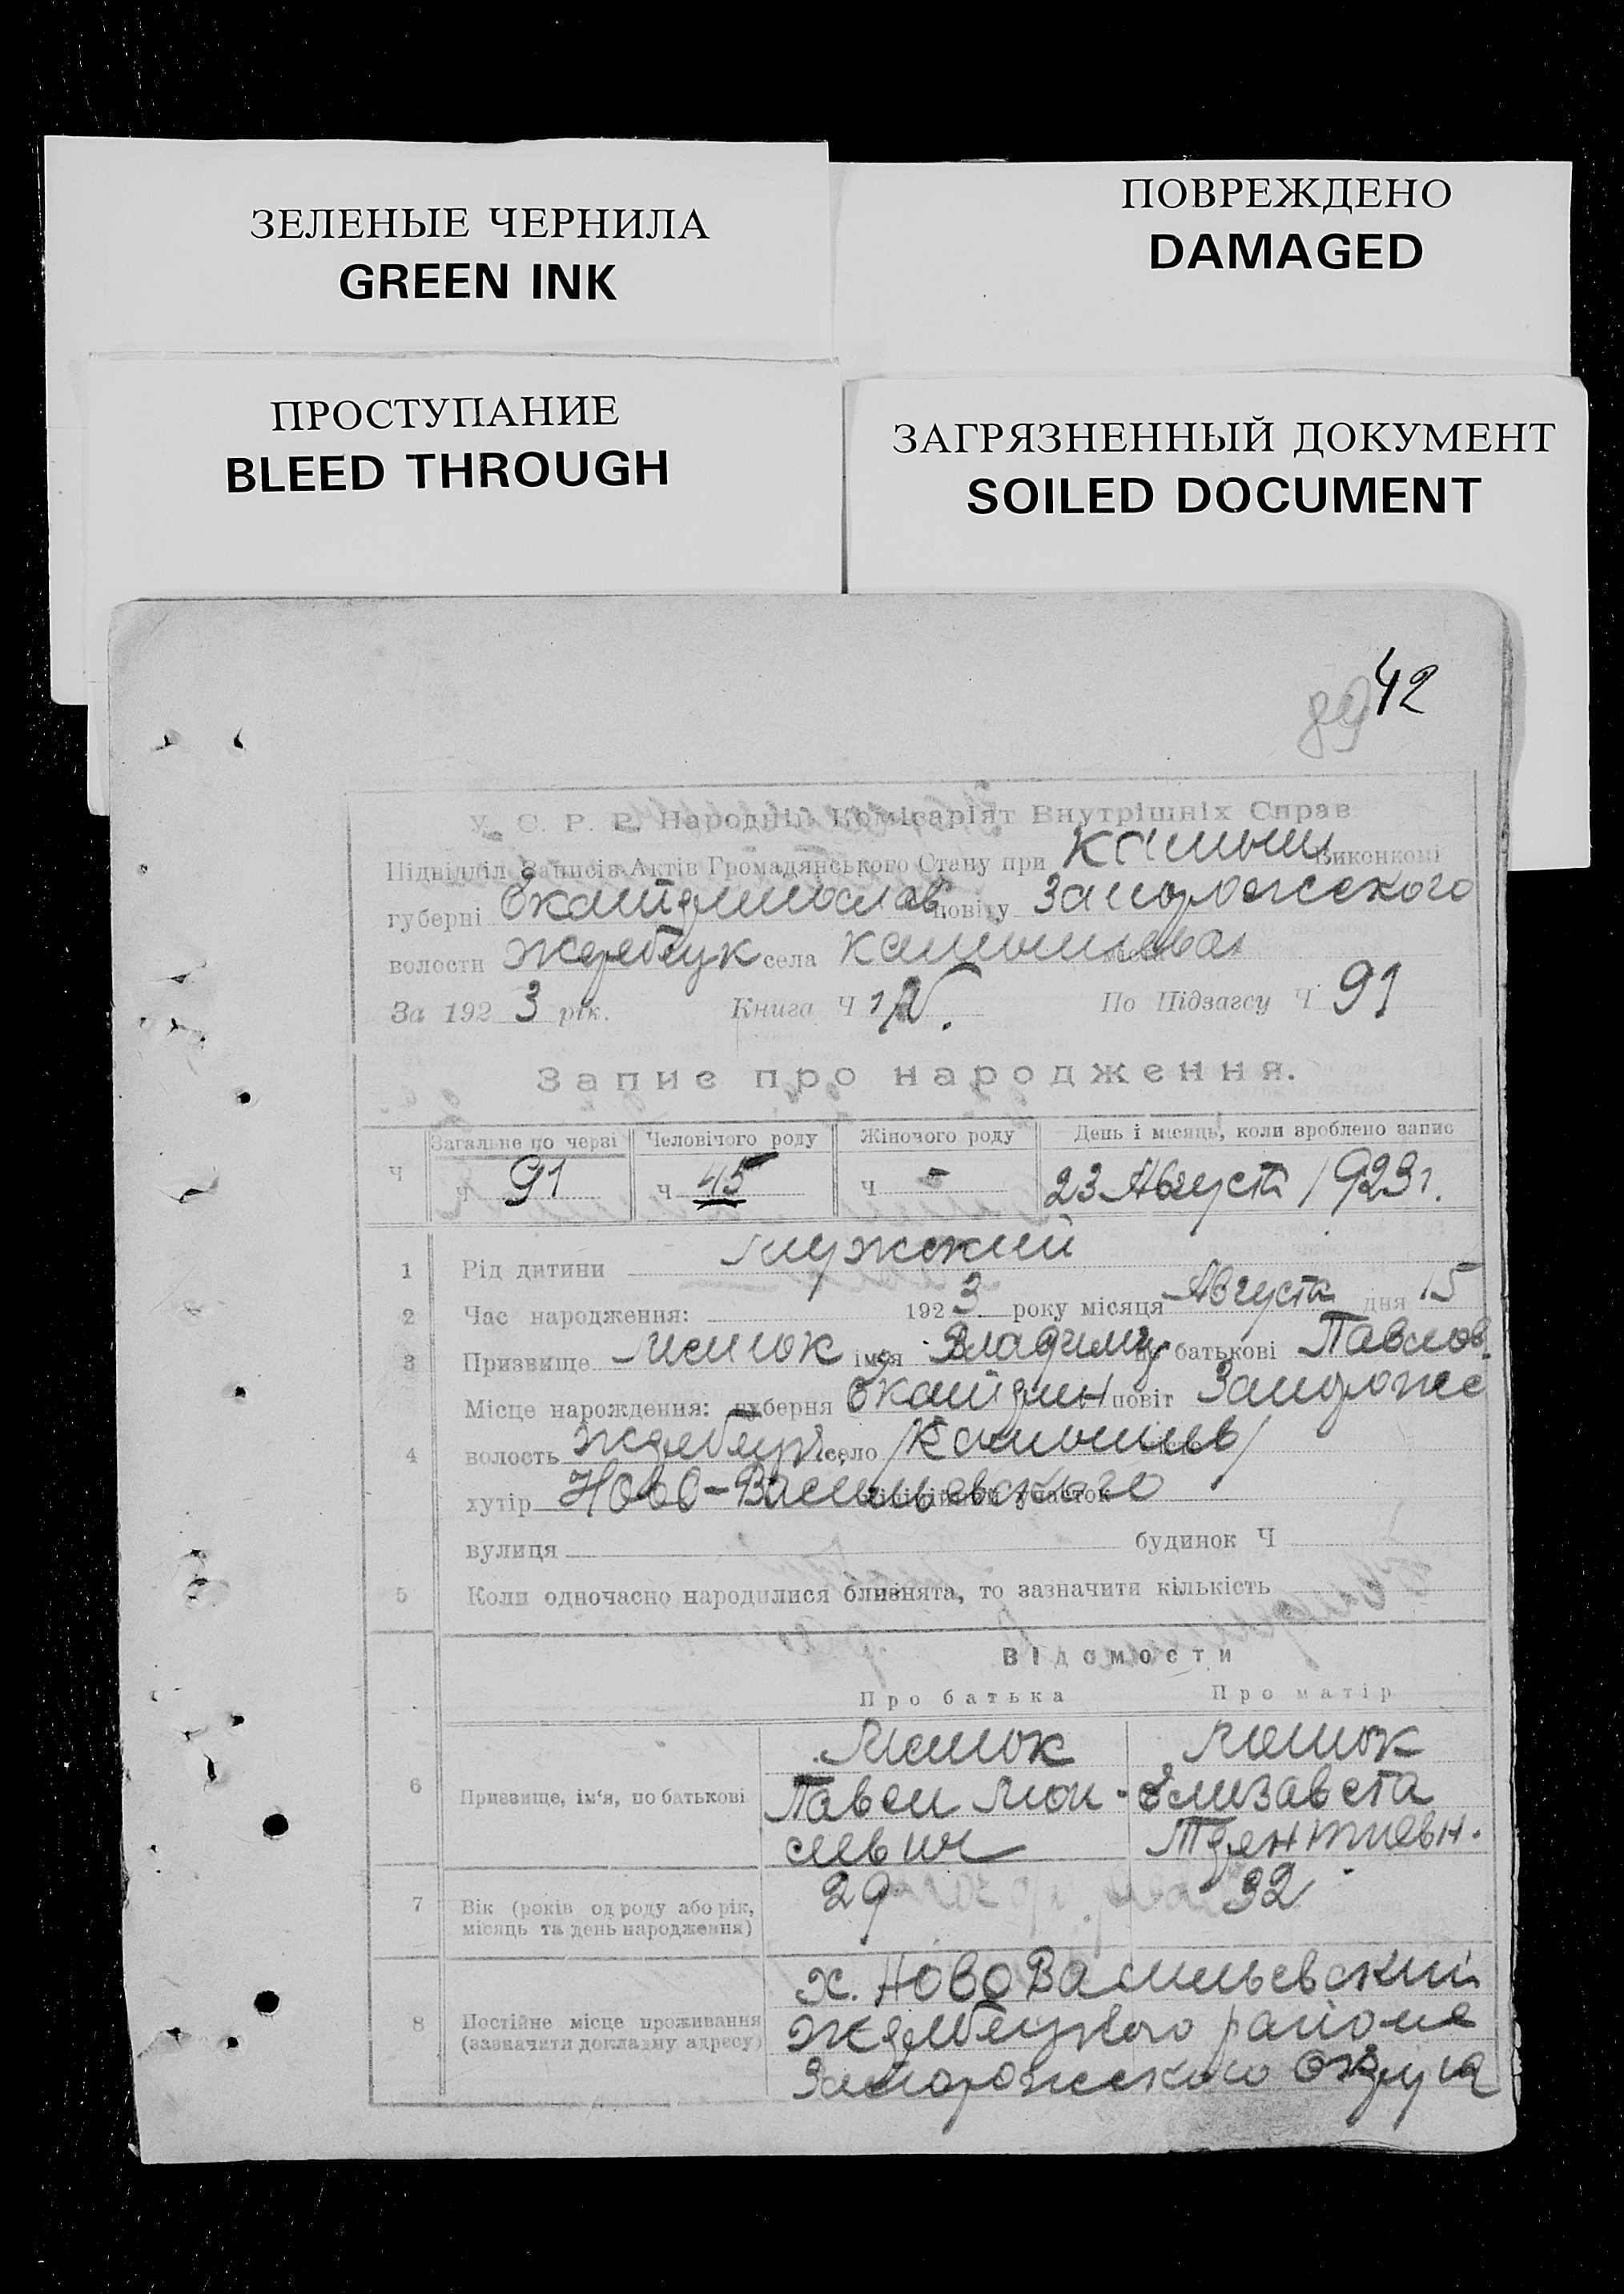 ЗЕЛЕНЫЕ ЧЕРНИЛА
GREEN INK
ПОВРЕЖДЕНО
DAMAGED
ПРОСТУПАНИЕ
BLEED THROUGH
ЗАГРЯЗНЕННЫЙ ДОКУМЕНТ
SOILED DOCUMENT
89 42
У. С. Р. Р. Народній Комісаріят Внутрішніх Справ
Підвідділ Записів Актів Громадянського Стану при Камыш Виконкомі
губерні Екатеринослав повіту Запорожского
волости Жеребецк села Камышеваха
За 1923 рік. Книга Ч По Підзагсу Ч 91
Запис про народження.
Загальне по черзі Человічого роду Жіночого роду День і місяць, коли зроблено запис
Ч Ч 91 Ч 45 Ч - 23 Августа 1923 г.
1 Рід дитини мужский
2 Час народження: 1923 року місяця Августа дня 15
3 Призвище імя Владимир по батькові Павлов.
Місце нарождення: губерня Екатерин повіт Запорож
4 волость Жеребецк. село /Камышев/
хутір Ново-Васильевского
вулиця будинок Ч
5 Коли одночасно народилися близнята, то зазначити кількість
Відомости
Про батька Про матір
6 Призвище, ім'я, по батькові
Павел Мои- Елизавета
сеевич Терентиевн.
7 Вік (років од роду або рік, місяць та день народження) 29 32
8 Постійне місце проживання (зазначити докладну адресу)
х. Ново Васильевский
Жеребецкого района
Запорожского Округа